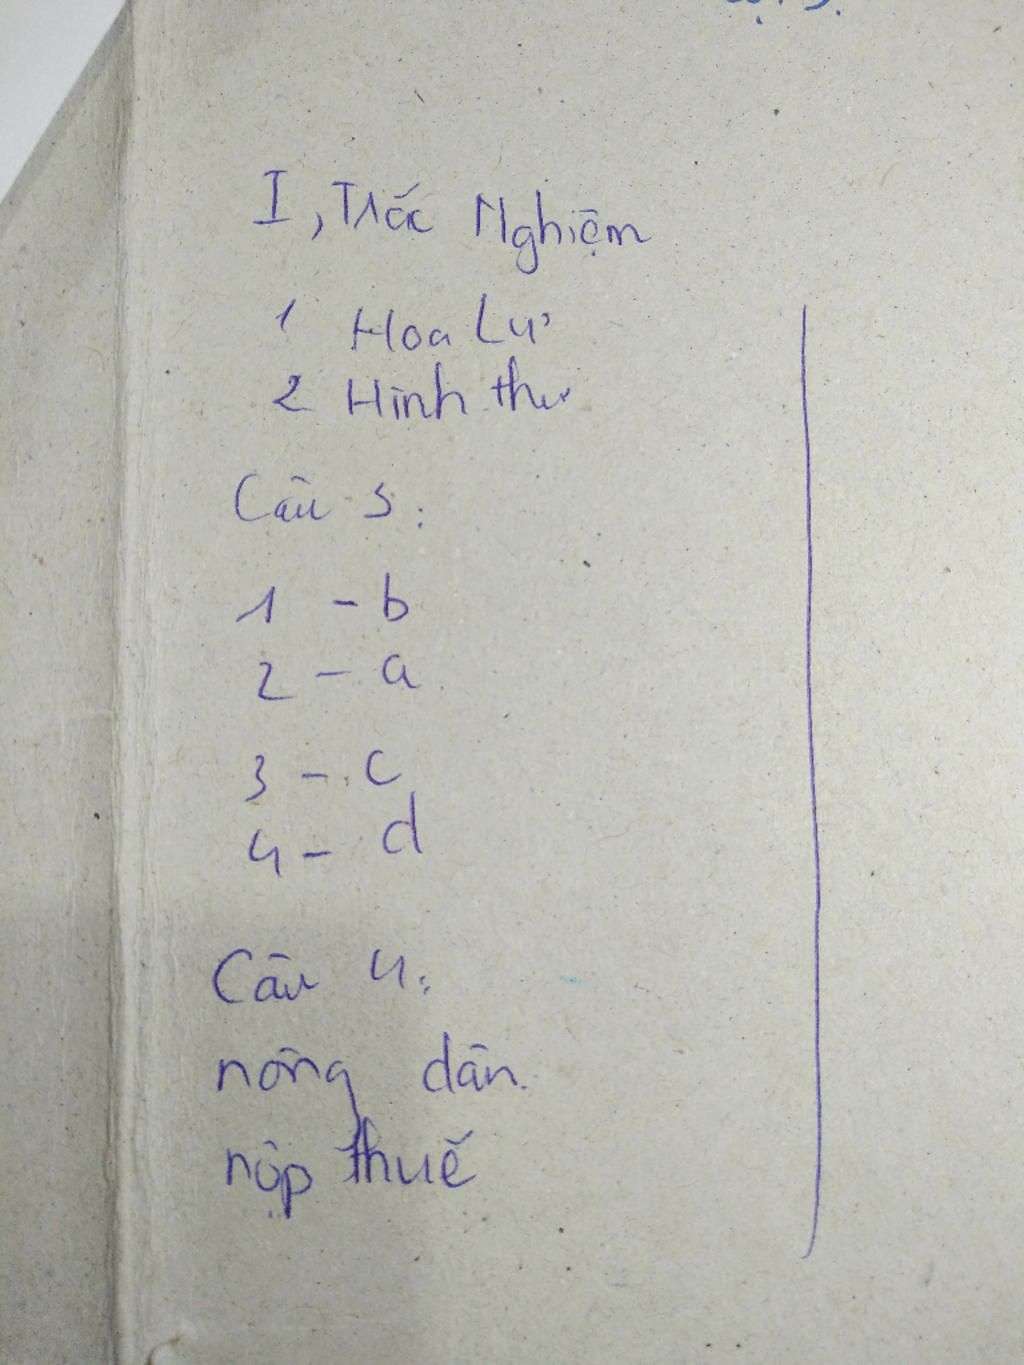 I, Trắc Nghiệm
1 Hoa Lư
2 Hình thư
Câu 3:
1 - b
2 - a
3 - c
4 - d
Câu 4:
nông dân.
nộp thuế